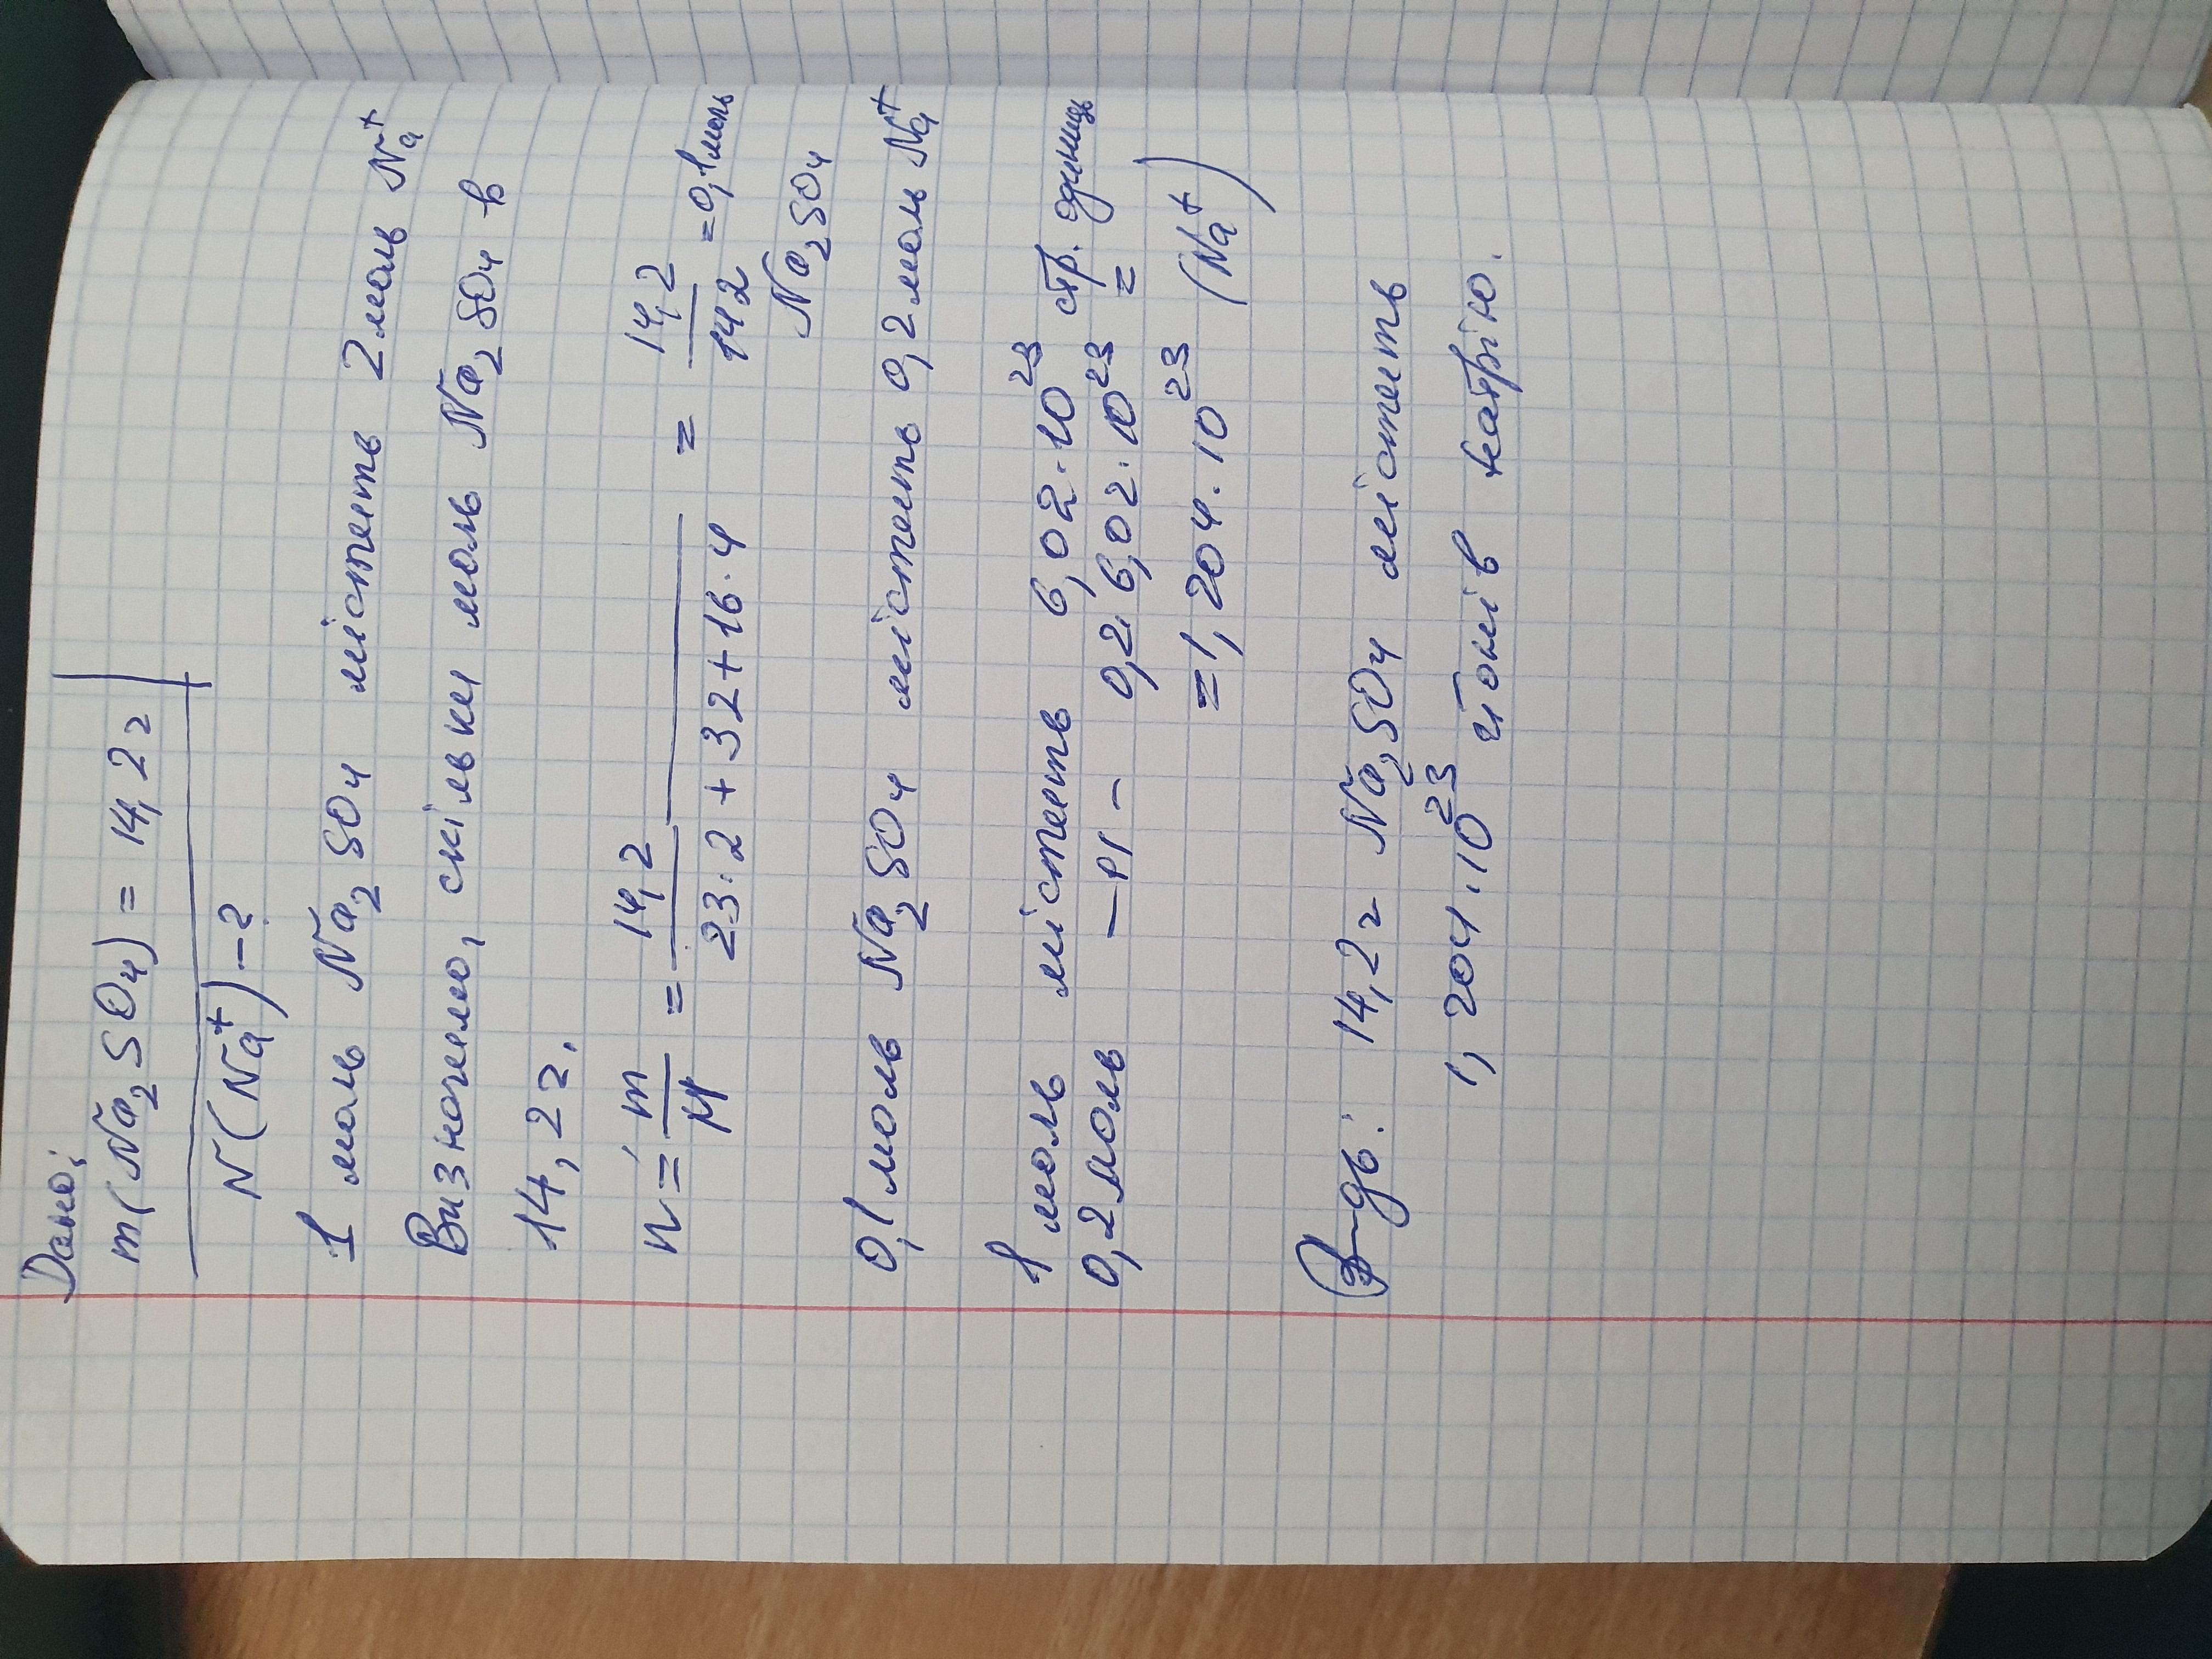 Дано:
m(Na₂SO₄) = 14,2г
N(Na⁺) – ?
1 моль Na₂SO₄ містить 2 моль Na⁺
Визначемо, скільки моль Na₂SO₄ в
14,2г.
n = m/M = 14,2/(23·2+32+16·4) = 14,2/142 = 0,1 моль
Na₂SO₄
0,1 моль Na₂SO₄ містить 0,2 моль Na⁺
1 моль містить 6,02·10²³ стр. одиниць
0,2 моль —//— 0,2·6,02·10²³ =
= 1,204·10²³ (Na⁺)
В-дь: 14,2г Na₂SO₄ містить
1,204·10²³ йонів натрію.